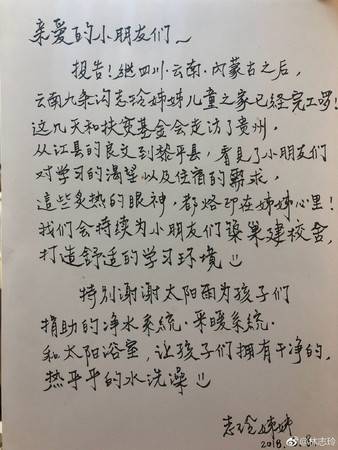 亲爱的小朋友们~
报告！继四川·云南·内蒙古之后，
云南九条沟志玲姊姊儿童之家已经完工啰！
这几天和扶贫基金会走访了贵州，
从江县的良文到黎平县，看见了小朋友们
对学习的渴望以及住宿的需求，
這些炙热的眼神，都烙印在姊姊心里！
我们会持续为小朋友们筑巢建校舍，
打造舒适的学习环境
特别谢谢太阳雨为孩子们
捐助的净水系统·采暖系统·
和太阳浴室，让孩子们拥有干净的，
热乎乎的水洗澡
志玲姊姊
2018.
@林志玲